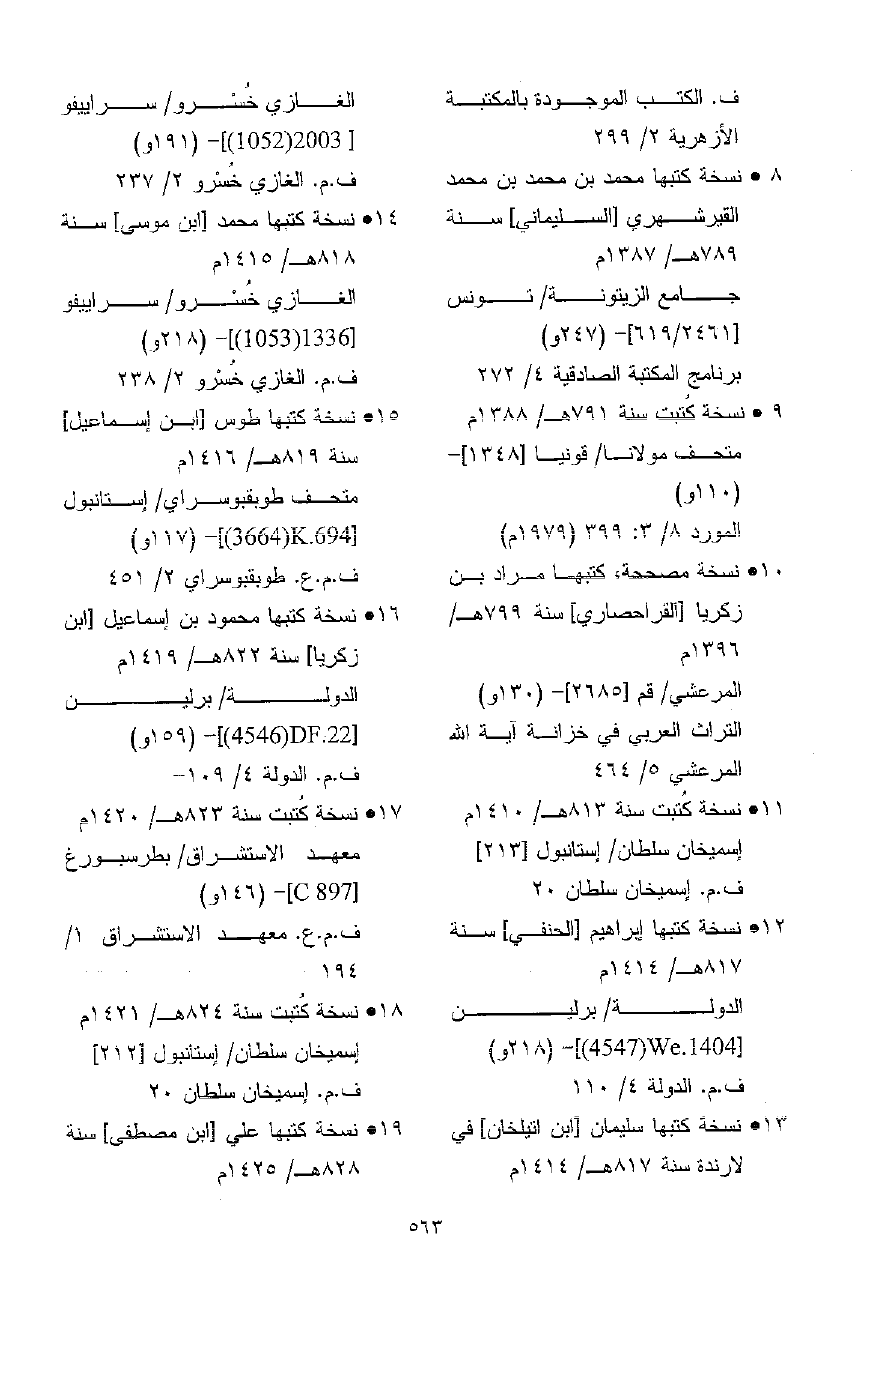 ف. الكتب الموجودة بالمكتبة
الأزهرية ٢/ ٢٩٩
٨ • نسخة كتبها محمد بن محمد بن محمد
القيرشهري [السليماني] سنة
٧٨٩هـ/ ١٣٨٧م
جامع الزيتونة/ تونس
[٦١٩/٢٤٦١]- (٢٤٧و)
برنامج المكتبة الصادقية ٤/ ٢٧٢
٩ • نسخة كُتبت سنة ٧٩١هـ/ ١٣٨٨م
متحف مولانا/ قونيا [١٣٤٨]-
(١١٠و)
المورد ٨/ ٣: ٣٩٩ (١٩٧٩م)
١٠• نسخة مصححة، كتبها مراد بن
زكريا [القراحصاري] سنة ٧٩٩هـ/
١٣٩٦م
المرعشي/ قم [٢٦٨٥]- (١٣٠و)
التراث العربي في خزانة آية الله
المرعشي ٥/ ٤٦٤
١١• نسخة كُتبت سنة ٨١٣هـ/ ١٤١٠م
إسميخان سلطان/ إستانبول [٢١٣]
ف.م. إسميخان سلطان ٢٠
١٢• نسخة كتبها إبراهيم [الحنفي] سنة
٨١٧هـ/ ١٤١٤م
الدولة/ برلين
[We.1404(4547)]- (٢١٨و)
ف.م. الدولة ٤/ ١١٠
١٣• نسخة كتبها سليمان [ابن اتيلخان] في
لارندة سنة ٨١٧هـ/ ١٤١٤م
الغازي خُسْرو/ سراييفو
[2003(1052)]- (١٩١و)
ف.م. الغازي خُسْرو ٢/ ٢٣٧
١٤• نسخة كتبها محمد [ابن موسى] سنة
٨١٨هـ/ ١٤١٥م
الغازي خُسْرو/ سراييفو
[1336(1053)]- (٢١٨و)
ف.م. الغازي خُسْرو ٢/ ٢٣٨
١٥• نسخة كتبها طوس [ابن إسماعيل]
سنة ٨١٩هـ/ ١٤١٦م
متحف طوبقبوسراي/ إستانبول
[K.694(3664)]- (١١٧و)
ف.م.ع. طوبقبوسراي ٢/ ٤٥١
١٦• نسخة كتبها محمود بن إسماعيل [ابن
زكريا] سنة ٨٢٢هـ/ ١٤١٩م
الدولة/ برلين
[DF.22(4546)]- (١٥٩و)
ف.م. الدولة ٤/ ١٠٩-
١٧• نسخة كُتبت سنة ٨٢٣هـ/ ١٤٢٠م
معهد الاستشراق/ بطرسبورغ
[C 897]- (١٤٦و)
ف.م.ع. معهد الاستشراق ١/
١٩٤
١٨• نسخة كُتبت سنة ٨٢٤هـ/ ١٤٢١م
إسميخان سلطان/ إستانبول [٢١٢]
ف.م. إسميخان سلطان ٢٠
١٩• نسخة كتبها علي [ابن مصطفى] سنة
٨٢٨هـ/ ١٤٢٥م
٥٦٣